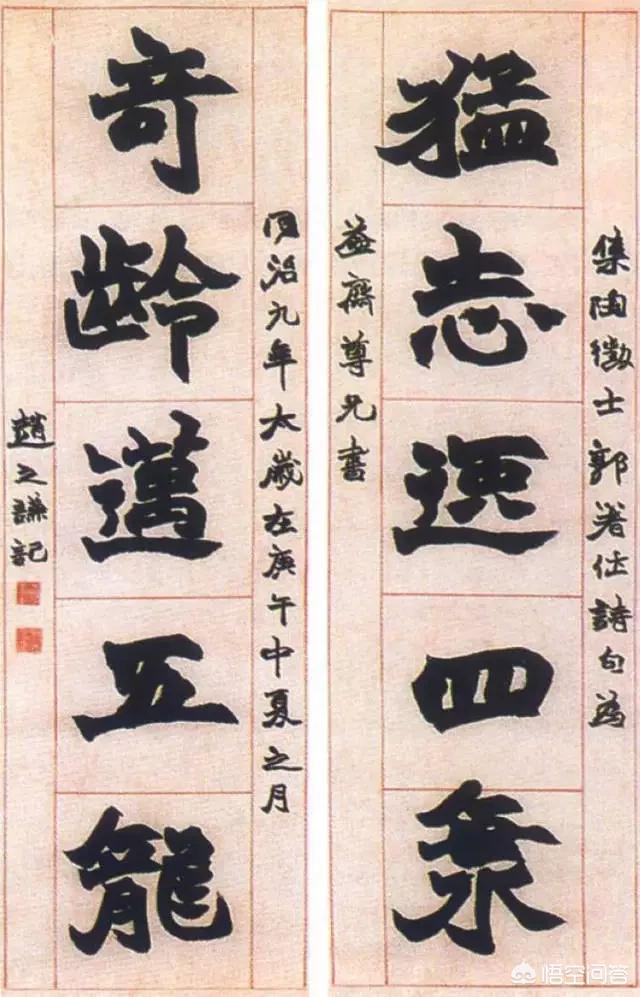 集陶徵士郭著作詩句為
猛志逸四海
益齋尊兄書
同治九年太歲在庚午中夏之月
奇齡邁五龍
趙之謙記
悟空问答